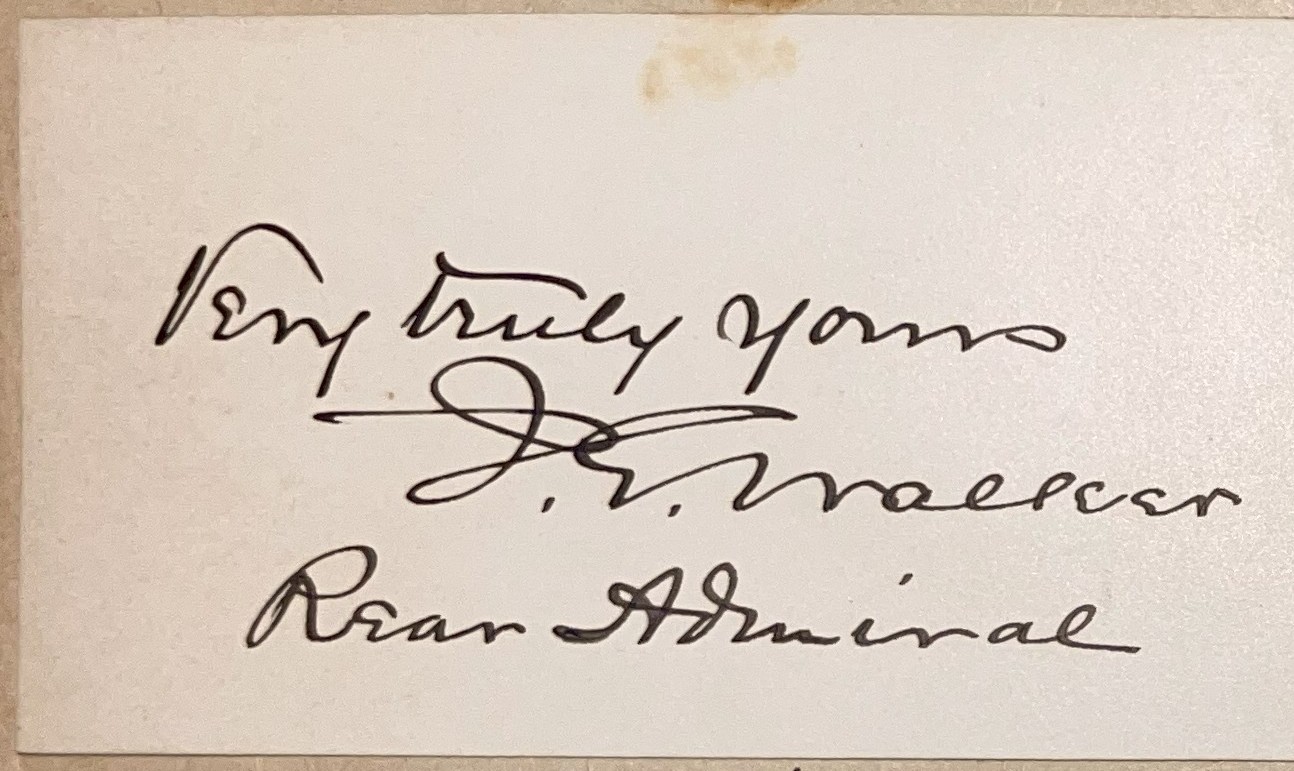 Very truly yours
J. G. Walker
Rear Admiral